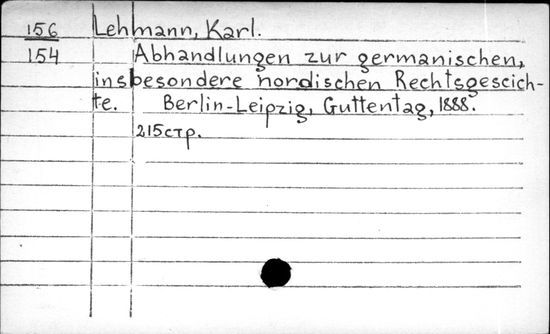 156 Lehmann, Karl.
154 Abhandlungen zur germanischen,
insbesondere nordischen Rechtsgescich-
te. Berlin-Leipzig, Guttentag, 1888.
215стр.